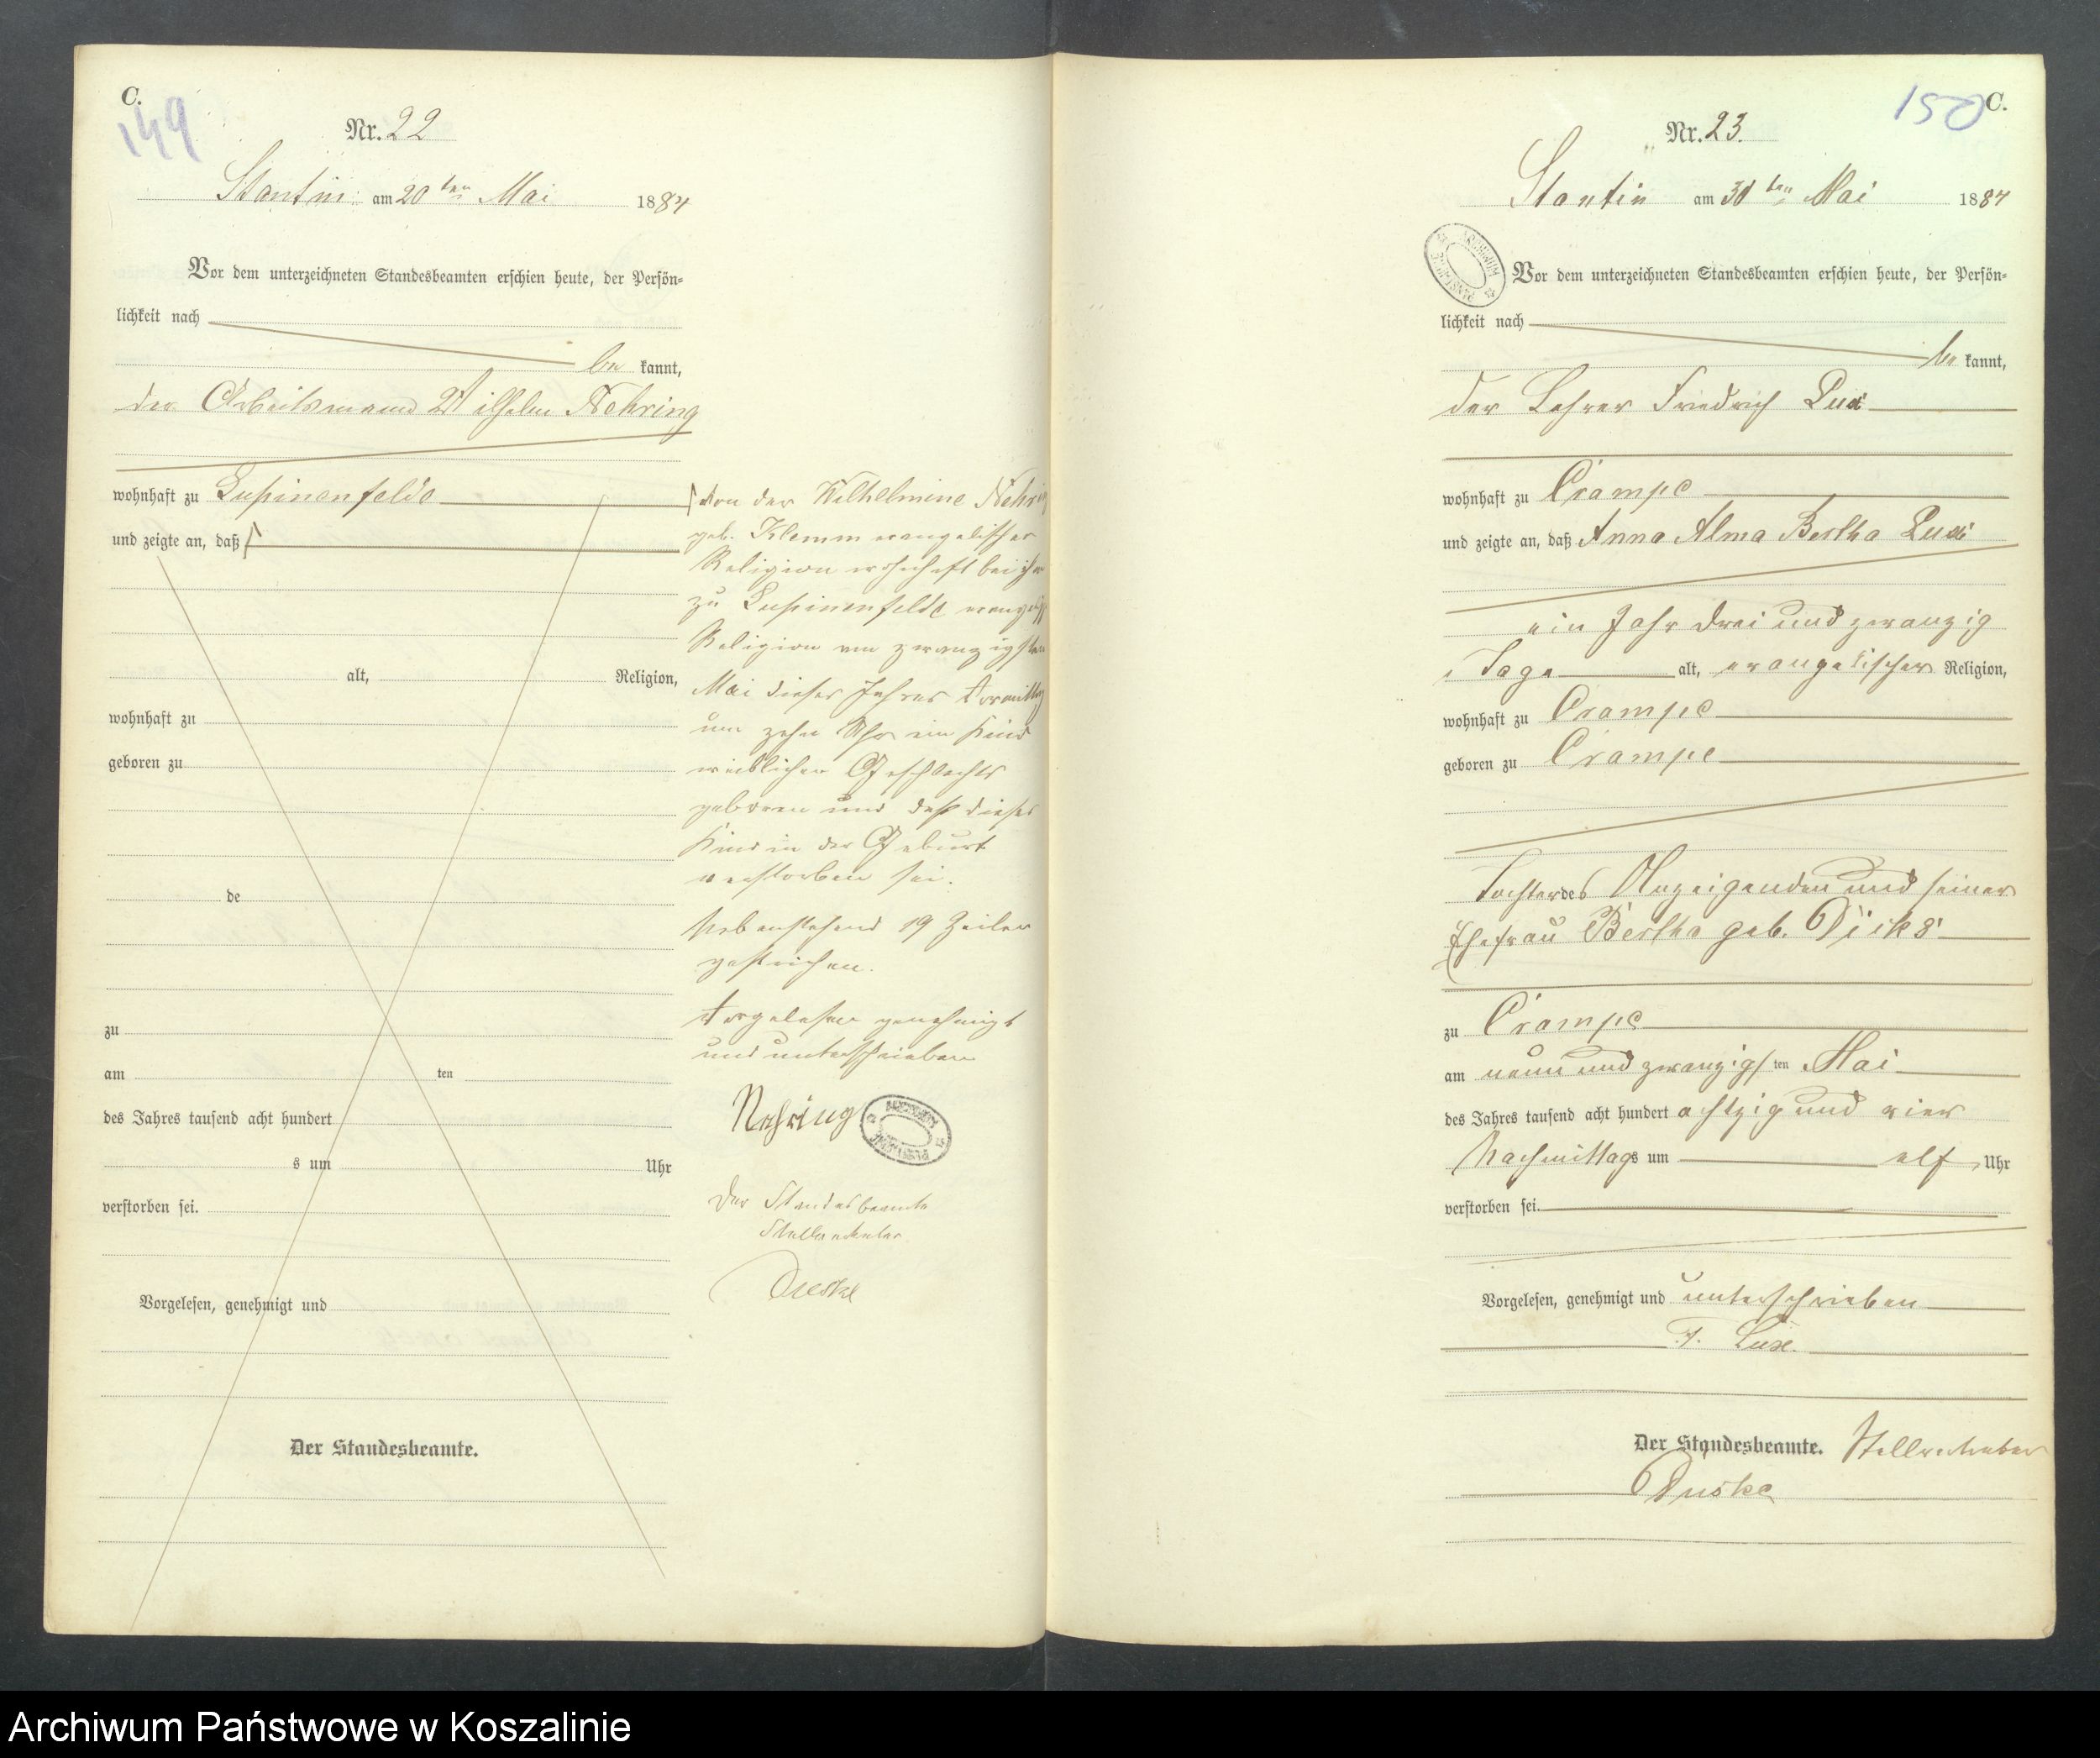 C.
149
Nr. 22
Stantin am 20ten Mai 1884
Vor dem unterzeichneten Standesbeamten erschien heute, der Persön=
lichkeit nach
be kannt,
der Arbeitsmann Wilhelm Nehring
wohnhaft zu Lupinenfelde
und zeigte an, daß
alt, Religion,
wohnhaft zu
geboren zu
de
zu
am ten
des Jahres tausend acht hundert
s um Uhr
verstorben sei.
Vorgelesen, genehmigt und
Der Standesbeamte.
von der Wilhelmine Nehring
geb. Klemm evangelischer
Religion wohnhaft bei ihm
zu Lupinenfelde evangelisch
Religion am zwanzigsten
Mai dieses Jahres Vormittag
um zehn Uhr ein Kind
weiblichen Geschlechts
geboren und daß dieses
Kind in der Geburt
verstorben sei.
Nebenstehend 19 Zeilen
gestrichen.
Vorgelesen genehmigt
und unterschrieben
Nehring
Der Standesbeamte
Stellvertreter
150
C.
Nr. 23.
Stantin am 30ten Mai 1884
ARCHIWUM
Vor dem unterzeichneten Standesbeamten erschien heute, der Persön=
lichkeit nach
be kannt,
der Lehrer Friedrich Lux
wohnhaft zu Crampe
und zeigte an, daß Anna Alma Bertha Lux
ein Jahr drei und zwanzig
Tage alt, evangelischer Religion,
wohnhaft zu Crampe
geboren zu Crampe
Tochter des Anzeigenden und seiner
Ehefrau Bertha geb.
zu Crampe
am neun und zwanzigsten Mai
des Jahres tausend acht hundert achtzig und vier
Nachmittags um elf Uhr
verstorben sei.
Vorgelesen, genehmigt und unterschrieben
F. Luxe.
Der Standesbeamte. Stellvertreter
Archiwum Państwowe w Koszalinie